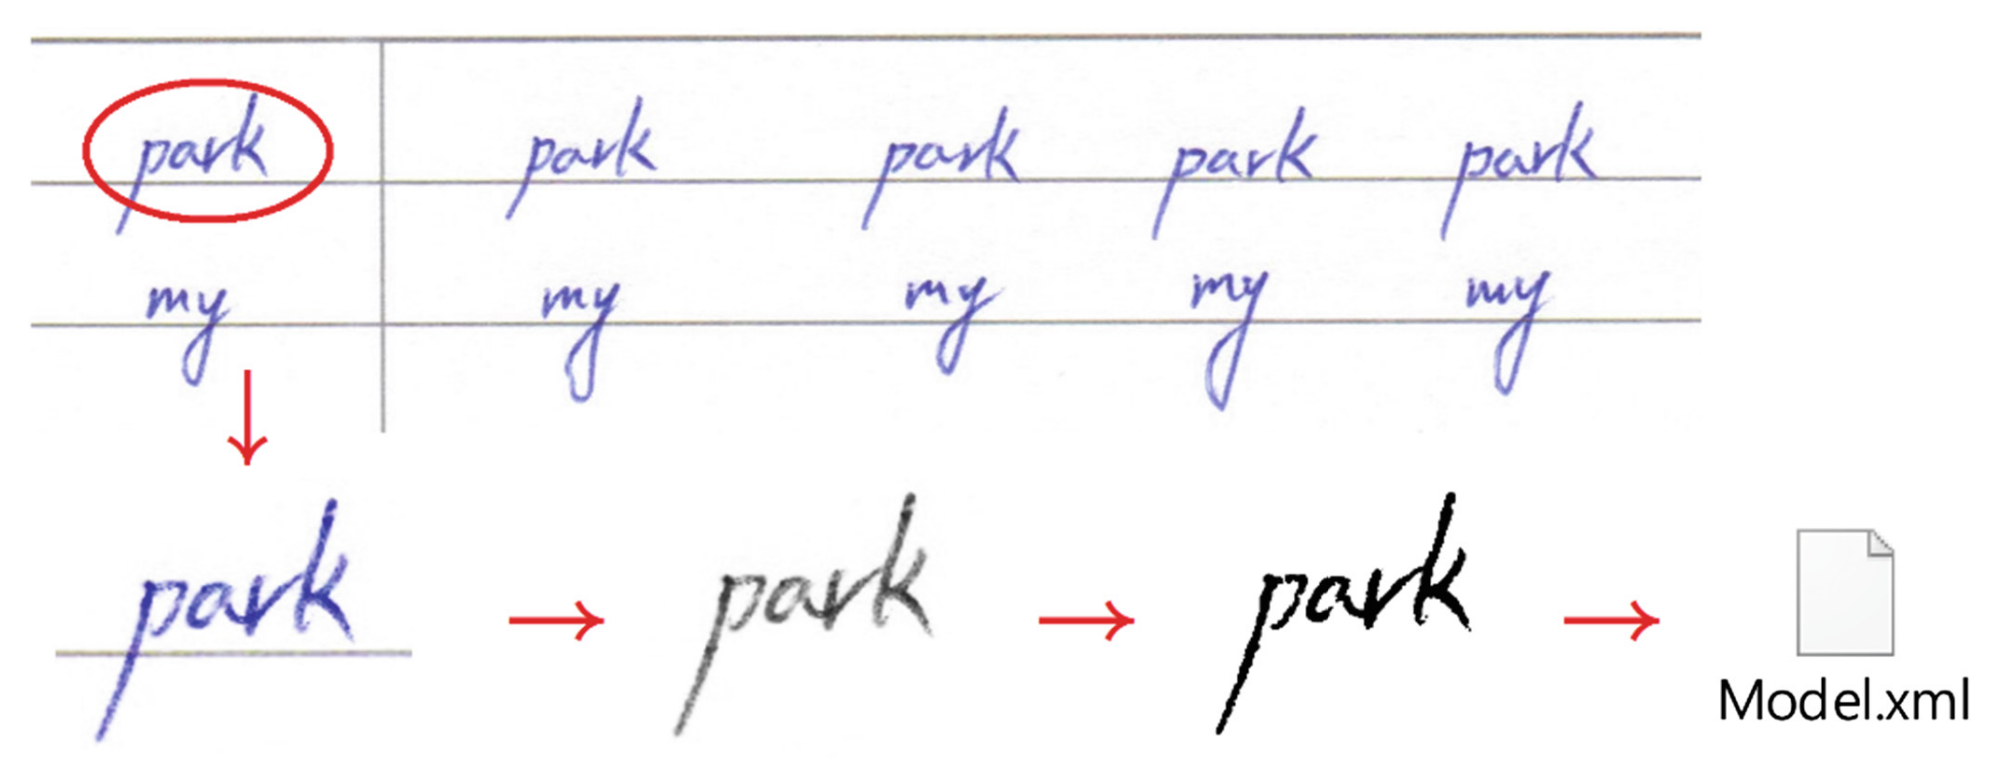 park park park park park
my my my my my
park park park
Model.xml